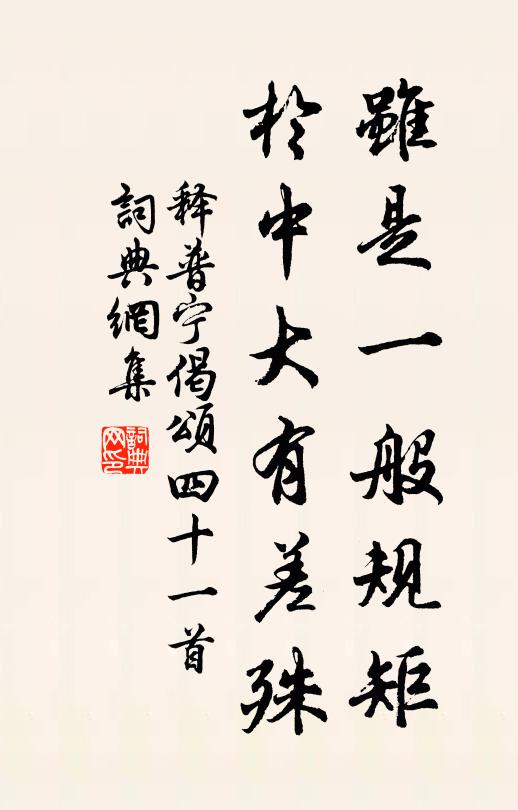 雖是一般規矩
於中大有差殊
释普宁偈頌四十一首
詞典網集
詞典网印